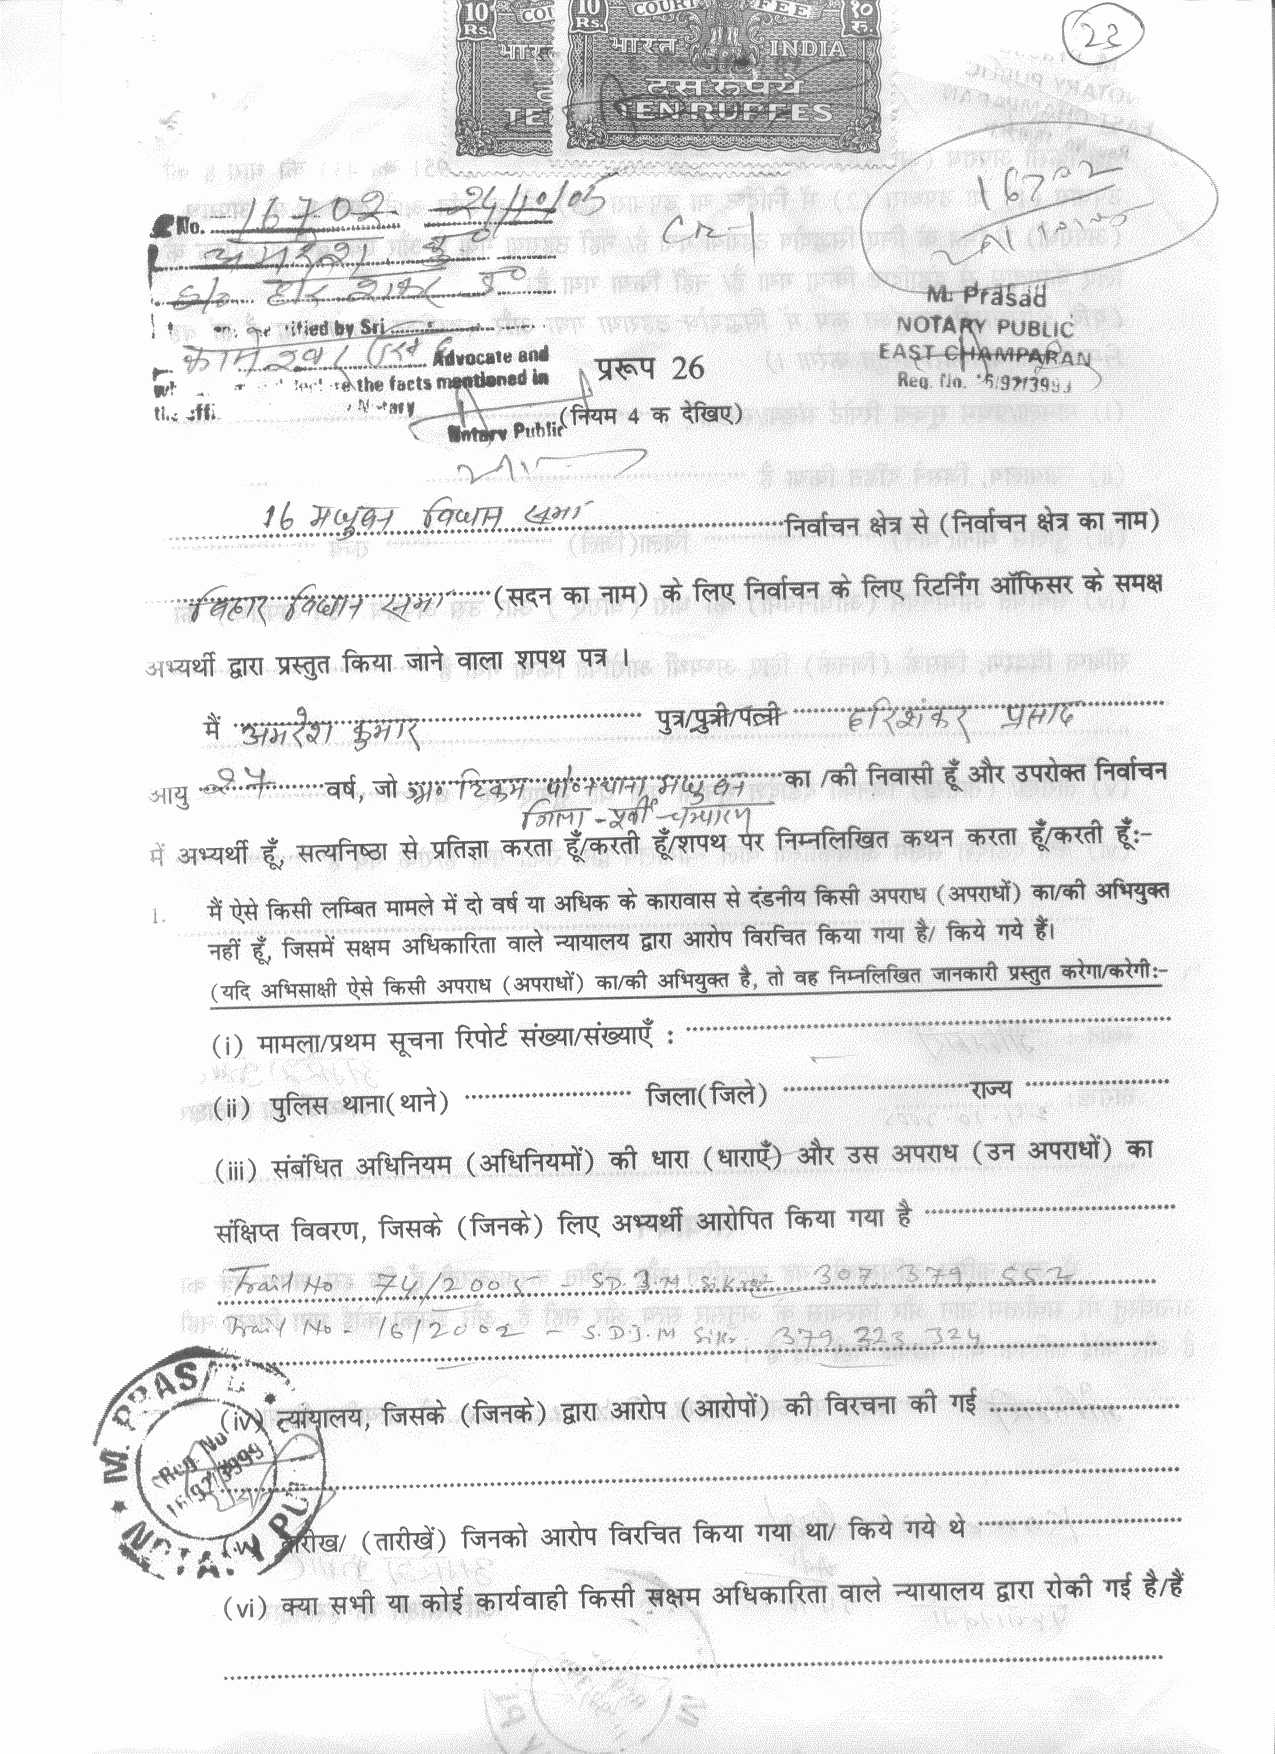 23
10 Rs. COURT FEE १० रु.
भारत INDIA
दस रुपये
TEN RUPEES
16702
No. 16702 24/10/05
CR 1
अमरेश कु०
हरि शंकर
M. Prasad
NOTARY PUBLIC
EAST CHAMPARAN
Reg. No. 16/92/3999
ified by Sri
Advocate and
the facts mentioned in
Notary
Notary Public
प्ररूप 26
(नियम 4 क देखिए)
16 मधुबन विधान सभा निर्वाचन क्षेत्र से (निर्वाचन क्षेत्र का नाम)
बिहार विधान सभा (सदन का नाम) के लिए निर्वाचन के लिए रिटर्निंग ऑफिसर के समक्ष
अभ्यर्थी द्वारा प्रस्तुत किया जाने वाला शपथ पत्र ।
मैं अमरेश कुमार पुत्र/पुत्री/पत्नी हरिशंकर प्रसाद
आयु वर्ष, जो ग्रा० टिकम पो०+थाना मधुबन का /की निवासी हूँ और उपरोक्त निर्वाचन
जिला - पूर्वी - चम्पारण
में अभ्यर्थी हूँ, सत्यनिष्ठा से प्रतिज्ञा करता हूँ/करती हूँ/शपथ पर निम्नलिखित कथन करता हूँ/करती हूँ:-
1. मैं ऐसे किसी लम्बित मामले में दो वर्ष या अधिक के कारावास से दंडनीय किसी अपराध (अपराधों) का/की अभियुक्त
नहीं हूँ, जिसमें सक्षम अधिकारिता वाले न्यायालय द्वारा आरोप विरचित किया गया है/ किये गये हैं।
(यदि अभिसाक्षी ऐसे किसी अपराध (अपराधों) का/की अभियुक्त है, तो वह निम्नलिखित जानकारी प्रस्तुत करेगा/करेगी:-
(i) मामला/प्रथम सूचना रिपोर्ट संख्या/संख्याएँ :
(ii) पुलिस थाना(थाने) जिला(जिले) राज्य
(iii) संबंधित अधिनियम (अधिनियमों) की धारा (धाराएँ) और उस अपराध (उन अपराधों) का
संक्षिप्त विवरण, जिसके (जिनके) लिए अभ्यर्थी आरोपित किया गया है
Trail No 74/2005 - SD.J.M Sikrah 307. 379, 552
Trail No - 16/2002 - S.D.J.M Sikr. 379 323 324
(iv) न्यायालय, जिसके (जिनके) द्वारा आरोप (आरोपों) की विरचना की गई
(v) तारीख/ (तारीखें) जिनको आरोप विरचित किया गया था/ किये गये थे
(vi) क्या सभी या कोई कार्यवाही किसी सक्षम अधिकारिता वाले न्यायालय द्वारा रोकी गई है/हैं
M. PRASAD
Reg No
16/92/3999
NOTARY PU